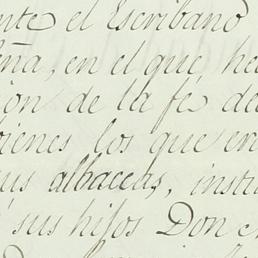 nte el Escribano
eña, en el que, he
ion de la fe de
bienes los que er
us albaceas, insti
sus hijos Don